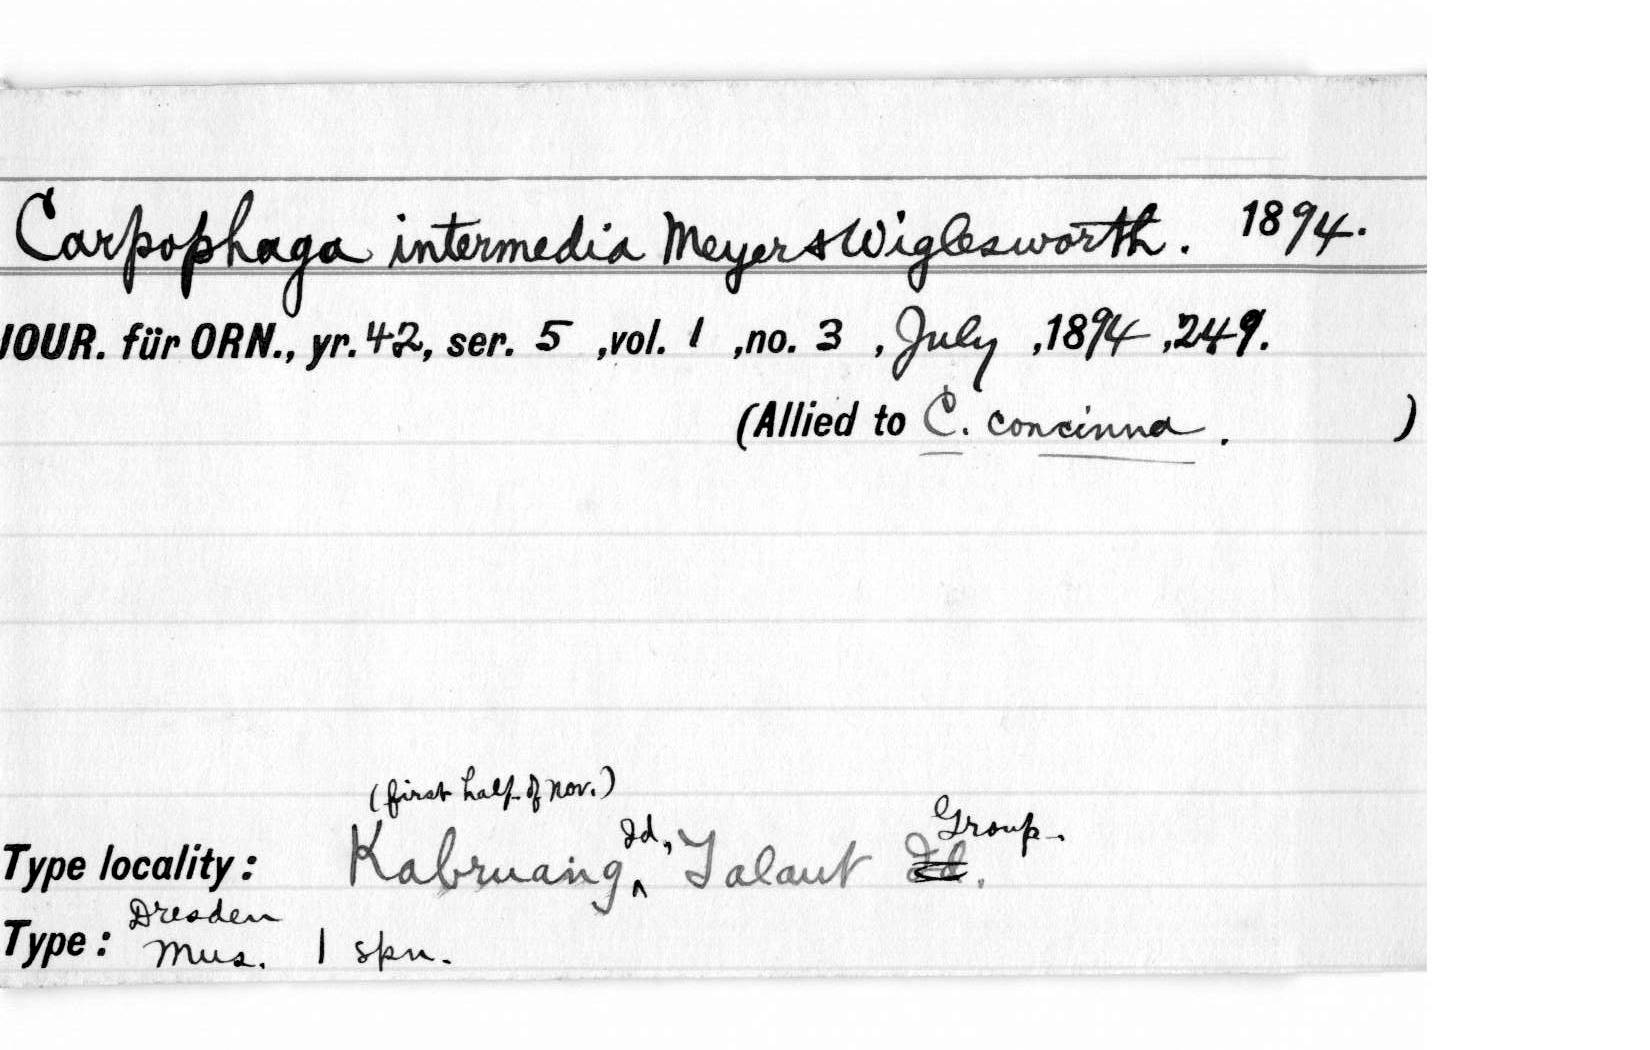 Carpophaga intermedia Meyer & Wiglesworth. 1894.
JOUR. für ORN., yr. 42, ser. 5 ,vol. 1 ,no. 3 , July ,1894 ,249.
(Allied to C. concinna. )
(first half of Nov.)
Type locality: Kabruang Id., Talaut Id. Group.
Type: Dresden
Mus. 1 spn.